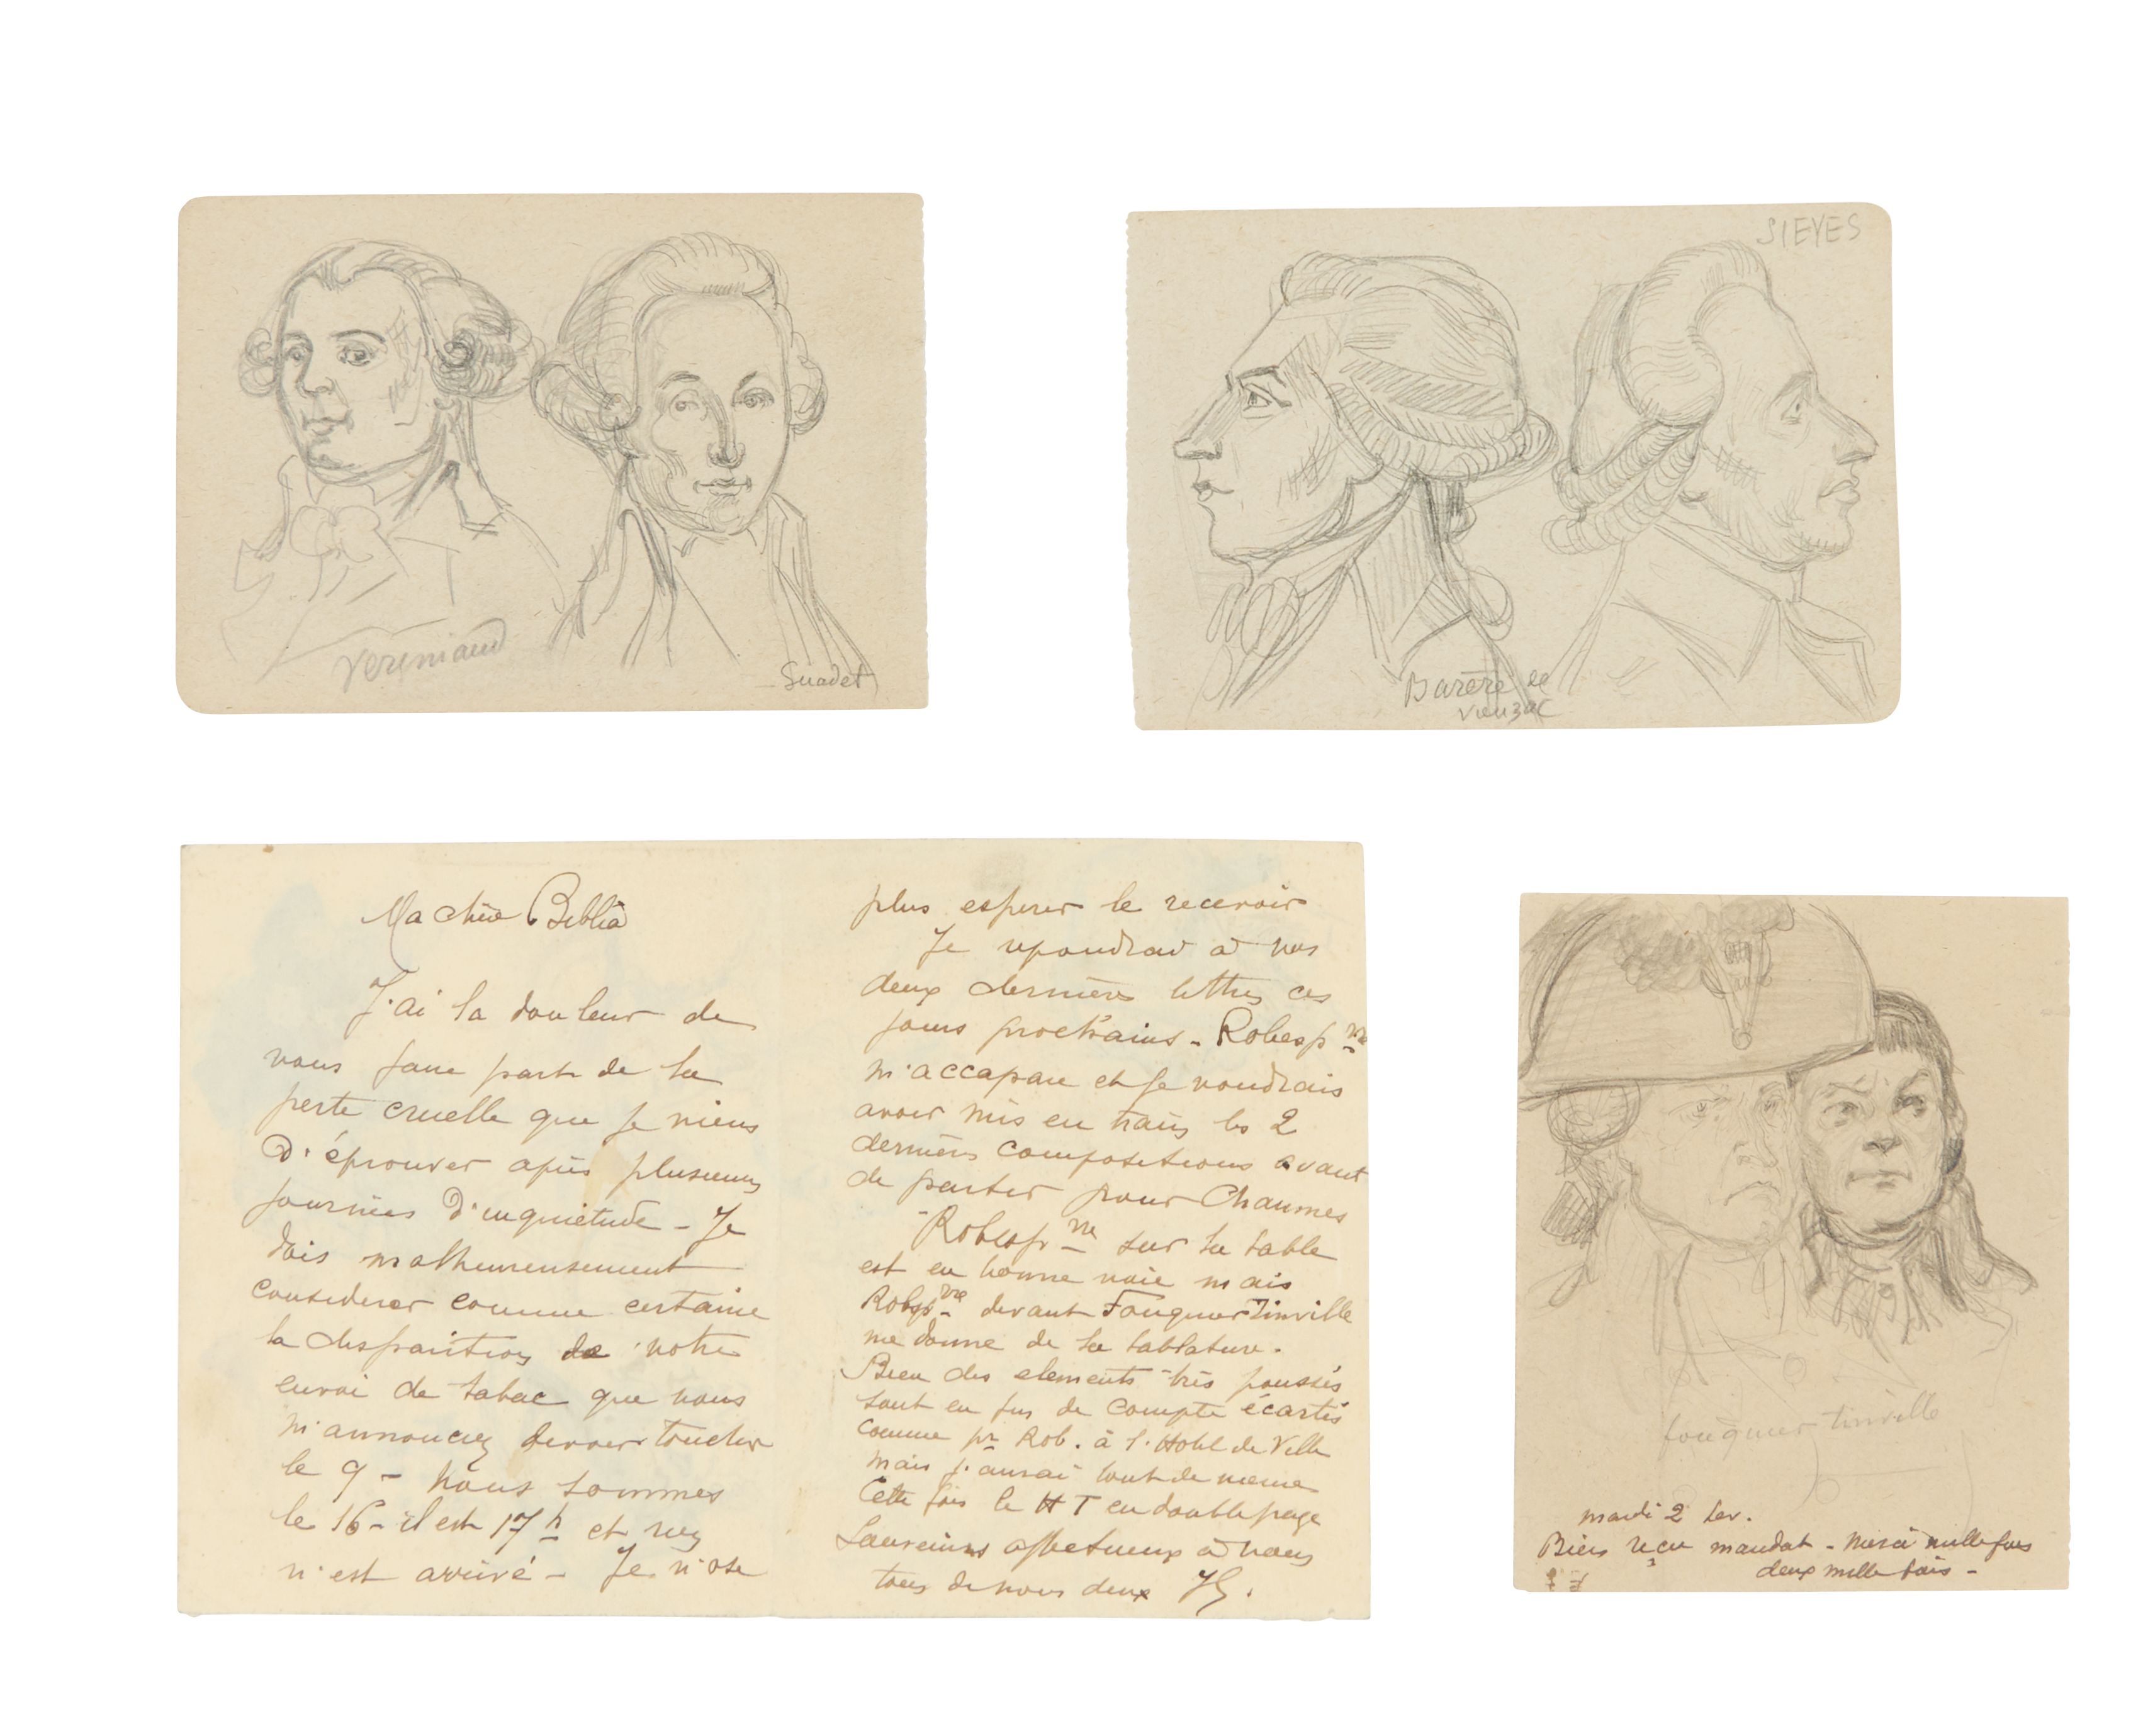 Vergniaud
Guadet
SIEYES
Barère de
Vieuzac
Ma chère Biblia
J'ai la douleur de
vous faire part de la
perte cruelle que je viens
d'éprouver après plusieurs
journées d'inquiétude - Je
dois malheureusement
considerer comme certaine
la disparition de votre
envoi de tabac que vous
m'annonciez devoir toucher
le 9 - nous sommes
le 16 - il est 17 h et rien
n'est arrivé - Je n'ose
plus esperer le recevoir
Je repondrai à vos
deux dernières lettres ces
jours prochains - Robesp re
m'accapare et je voudrais
avoir mis en train les 2
dernières compositions avant
de partir pour Chaumes
- Robesp re sur la table
est en bonne voie mais
Robesp re devant Fouquier Tinville
me donne de la tablature.
Bien des elements très poussés
sont en fin de compte écartés
comme pr Rob. à l'Hotel de Ville
mais j'aurai tout de meme
cette fois le HT en double page
Souvenirs affectueux à vous
tous de nous deux JG.
fouquier tinville
mardi 2
Bien reçu mandat - merci mille fois
deux mille fois -